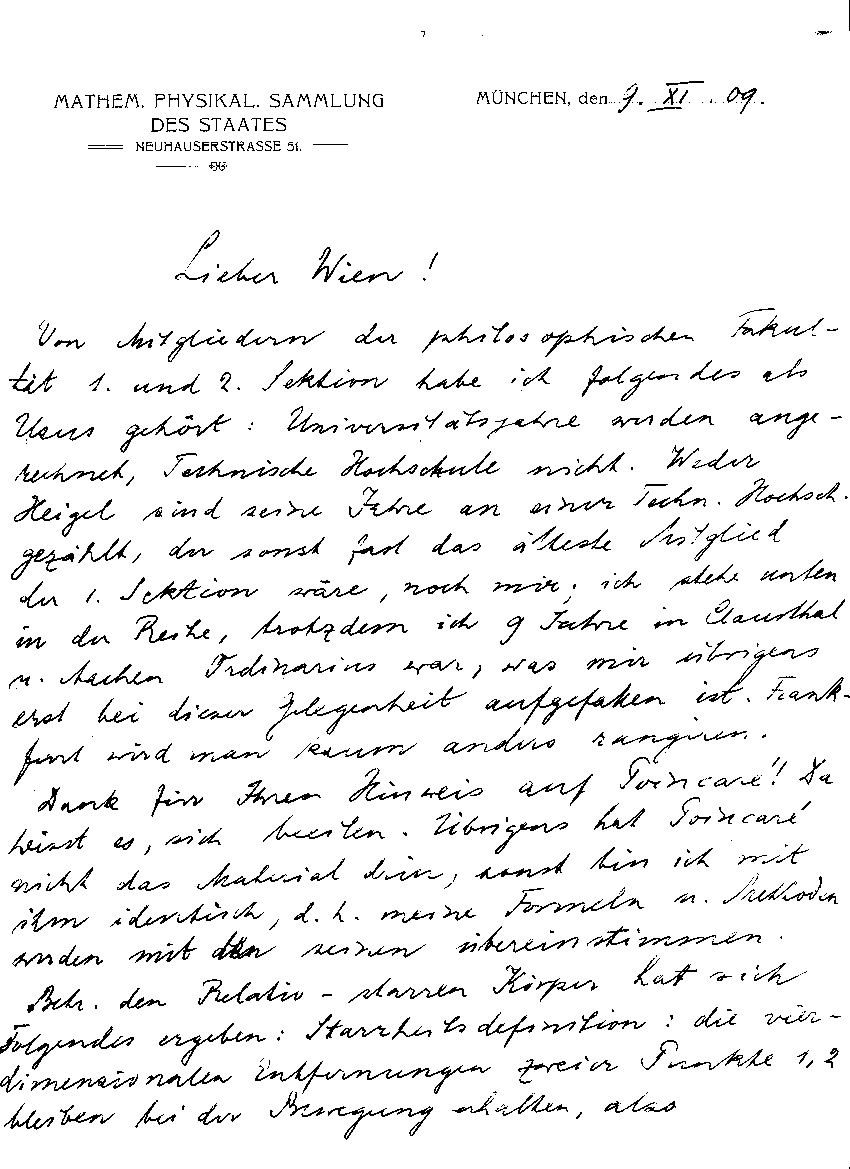 MATHEM. PHYSIKAL. SAMMLUNG
DES STAATES
NEUHAUSERSTRASSE 51.
MÜNCHEN, den 9. XI. 09.
Lieber Wien!
Von Mitgliedern der philosophischen Fakul-
tät 1. und 2. Sektion habe ich folgendes als
Usus gehört: Universitätsjahre werden ange-
rechnet, Technische Hochschule nicht. Weder
Heigel sind seine Jahre an einer Techn. Hochsch.
gezählt, der sonst fast das älteste Mitglied
der 1. Sektion wäre, noch mir; ich stehe unten
in der Reihe, trotzdem ich 9 Jahre in Clausthal
u. Aachen Ordinarius war, was mir übrigens
erst bei dieser Gelegenheit aufgefallen ist. Frank-
furt wird man kaum anders rangiren.
Dank für Ihren Hinweis auf Poincaré! Da
heisst es, sich beeilen. Übrigens hat Poincaré
nicht das Material drin, sonst bin ich mit
ihm identisch, d. h. meine Formeln u. Methoden
werden mit den seinen übereinstimmen.
Betr. den Relativ-starren Körper hat sich
Folgendes ergeben: Starrheitsdefinition: die vier-
dimensionalen Entfernungen zweier Punkte 1, 2
bleiben bei der Bewegung erhalten, also